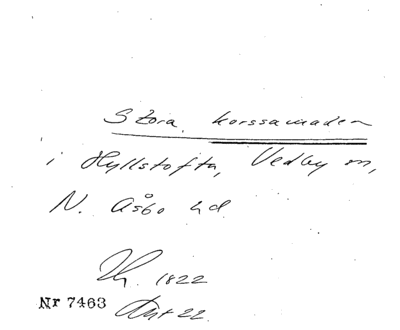 Stora korssamaden
i Hyllstofta, Vedby sn,
N. Åsbo hd
1822
Nr 7463